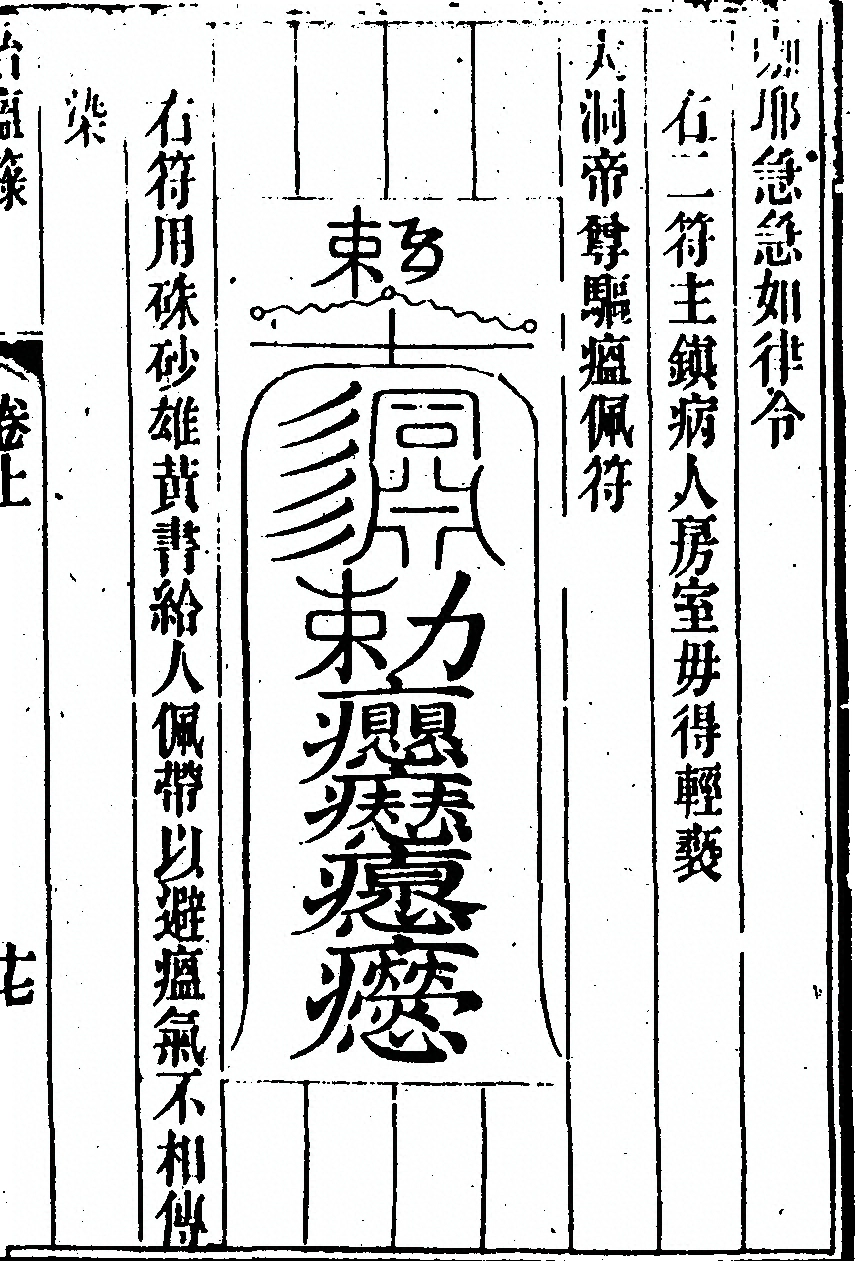 耶急急如律令
右二符主鎮病人房室毋得輕褻
大洞帝尊驅瘟佩符
敕
勅
右符用硃砂雄黃書給人佩帶以避瘟氣不相傳
染
治瘟籙
卷上
七